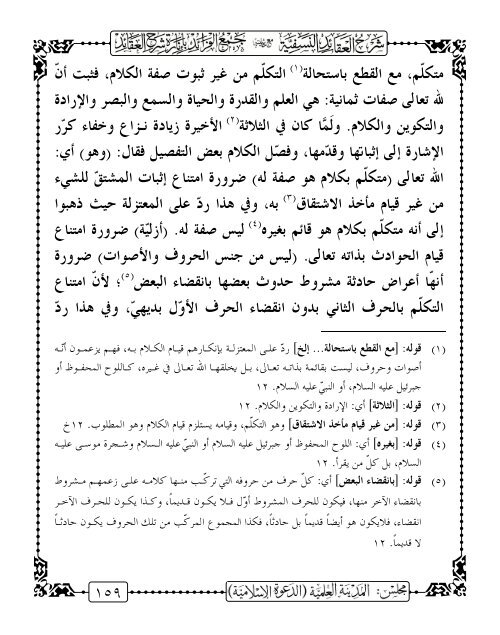 شرح العقائد النسفية مع جمع الفرائد بإنارة شرح العقائد
متكلّم، مع القطع باستحالة(١) التكلّم من غير ثبوت صفة الكلام، فثبت أنّ
لله تعالى صفات ثمانية: هي العلم والقدرة والحياة والسمع والبصر والإرادة
والتكوين والكلام. ولَمَّا كان في الثلاثة(٢) الأخيرة زيادة نزاع وخفاء كرّر
الإشارة إلى إثباتها وقدّمها، وفصّل الكلام بعض التفصيل فقال: (وهو) أي:
الله تعالى (متكلّم بكلام هو صفة له) ضرورة امتناع إثبات المشتقّ للشيء
من غير قيام مأخذ الاشتقاق(٣) به، وفي هذا ردّ على المعتزلة حيث ذهبوا
إلى أنه متكلّم بكلام هو قائم بغيره(٤) ليس صفة له. (أزليّة) ضرورة امتناع
قيام الحوادث بذاته تعالى. (ليس من جنس الحروف والأصوات) ضرورة
أنهّا أعراض حادثة مشروط حدوث بعضها بانقضاء البعض(٥)؛ لأنّ امتناع
التكلّم بالحرف الثاني بدون انقضاء الحرف الأوّل بديهيّ، وفي هذا ردّ
(١) قوله: [مع القطع باستحالة... إلخ] ردّ على المعتزلة بإنكارهم قيام الكلام به، فهم يزعمون أنّه
أصوات وحروف، ليست بقائمة بذاته تعالى، بل يخلقها الله تعالى في غيره، كاللوح المحفوظ أو
جبرئيل عليه السلام، أو النبيّ عليه السلام. ١٢
(٢) قوله: [الثلاثة] أي: الإرادة والتكوين والكلام. ١٢
(٣) قوله: [من غير قيام مأخذ الاشتقاق] وهو التكلّم، وقيامه يستلزم قيام الكلام وهو المطلوب. ١٢خ
(٤) قوله: [بغيره] أي: اللوح المحفوظ أو جبرئيل عليه السلام أو النبيّ عليه السلام وشجرة موسى عليه
السلام، بل كلّ من يقرأ. ١٢
(٥) قوله: [بانقضاء البعض] أي: كلّ حرف من حروفه التي تركّب منها كلامه على زعمهم مشروط
بانقضاء الآخر منها، فيكون للحرف المشروط أوّل فلا يكون قديماً، وكذا يكون للحرف الآخر
انقضاء، فلايكون هو أيضاً قديماً بل حادثاً، فكذا المجموع المركّب من تلك الحروف يكون حادثاً
لا قديماً. ١٢
مجلس: المدينة العلمية (الدعوة الإسلامية)
١٥٩